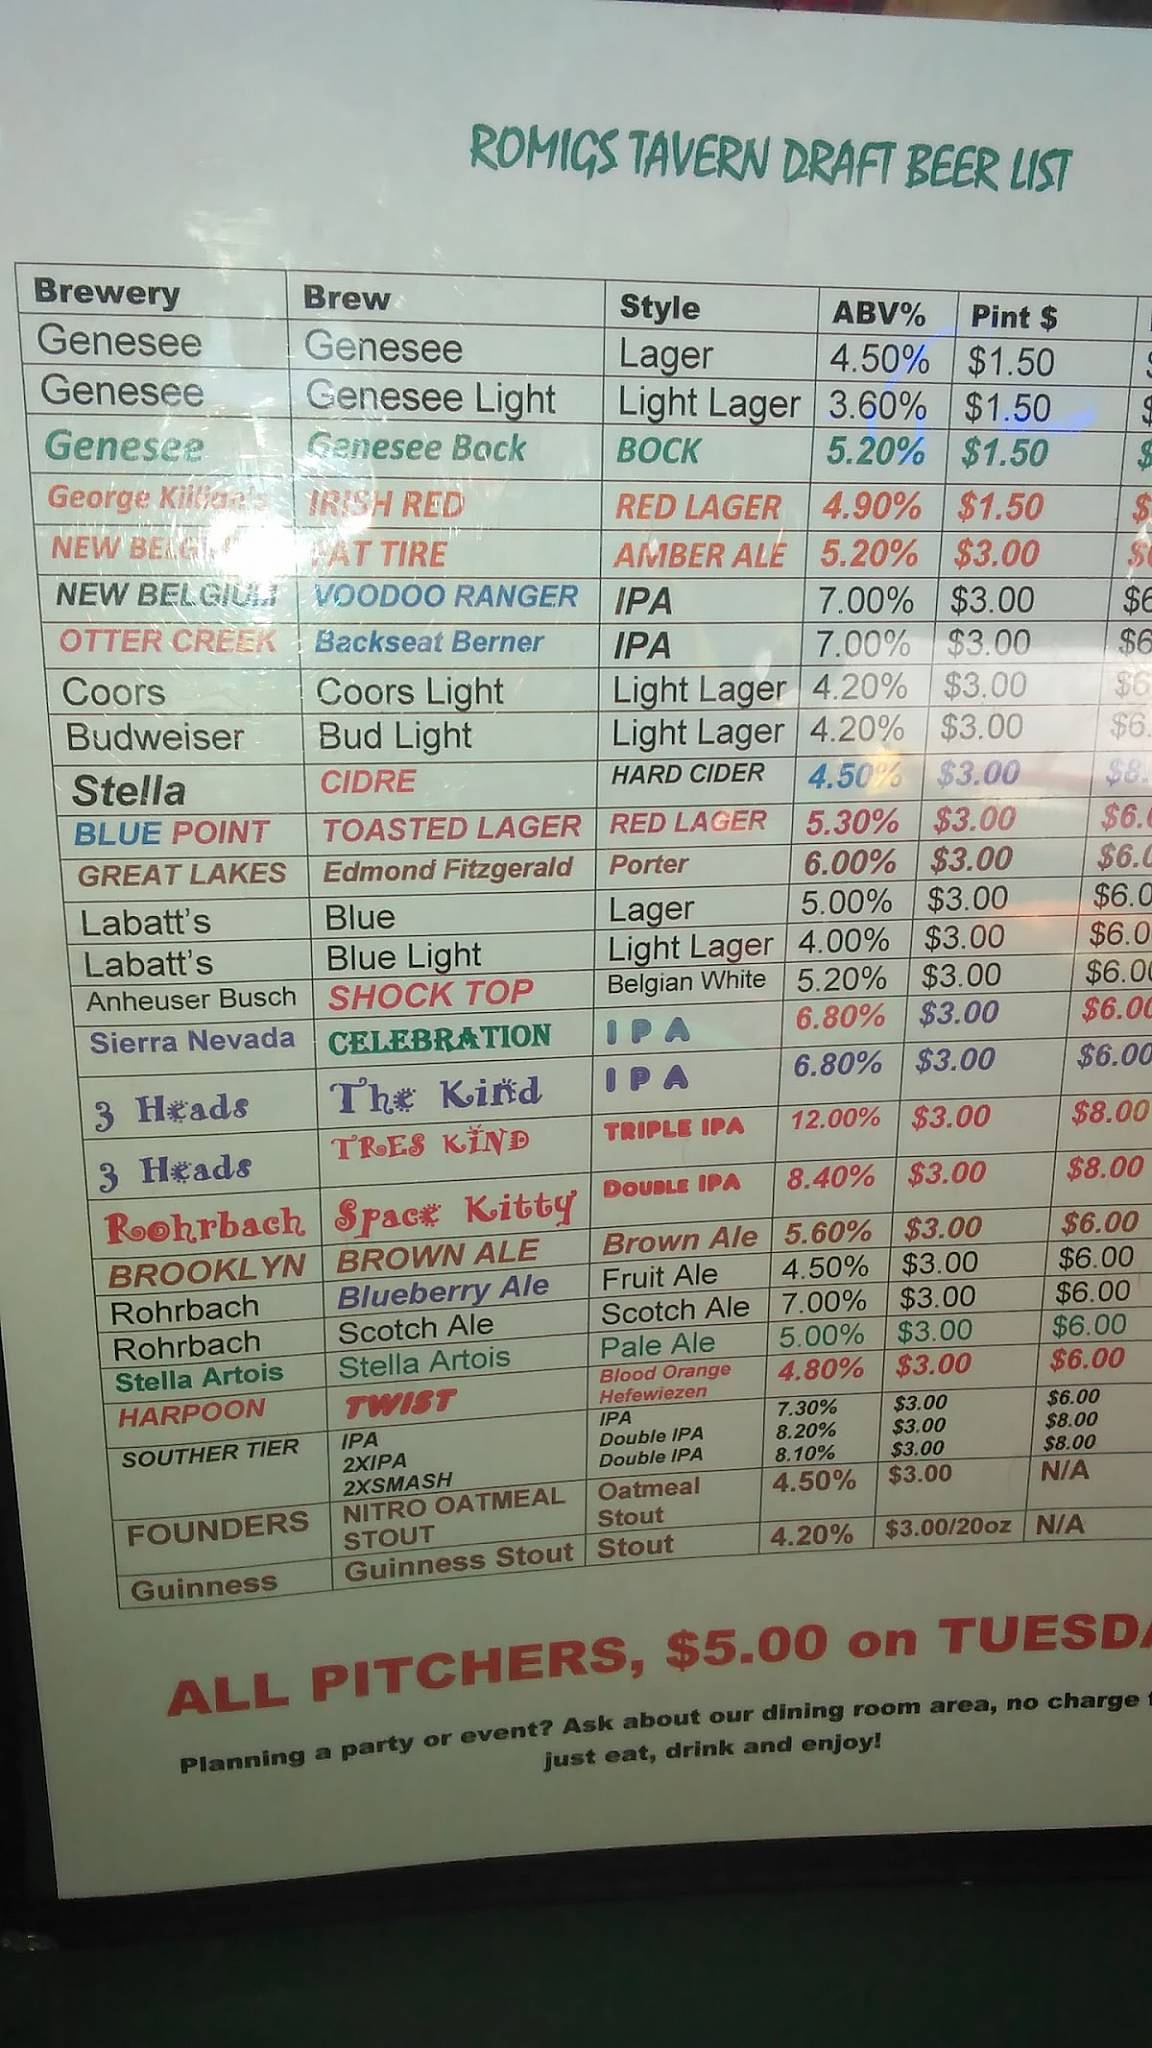 ROMIGS TAVERN DRAFT BEER LIST
Brewery Brew Style ABV% Pint $
Genesee Genesee Lager 4.50% $1.50
Genesee Genesee Light Light Lager 3.60% $1.50 $
Genesee Genesee Bock BOCK 5.20% $1.50 $
George Killian's IRISH RED RED LAGER 4.90% $1.50 $
NEW BELGIUM FAT TIRE AMBER ALE 5.20% $3.00
NEW BELGIUM VOODOO RANGER IPA 7.00% $3.00 $6
OTTER CREEK Backseat Berner IPA 7.00% $3.00 $6
Coors Coors Light Light Lager 4.20% $3.00 $6
Budweiser Bud Light Light Lager 4.20% $3.00 $6.
Stella CIDRE HARD CIDER 4.50% $3.00 $8.
BLUE POINT TOASTED LAGER RED LAGER 5.30% $3.00 $6.0
GREAT LAKES Edmond Fitzgerald Porter 6.00% $3.00 $6.0
Labatt's Blue Lager 5.00% $3.00 $6.0
Labatt's Blue Light Light Lager 4.00% $3.00 $6.0
Anheuser Busch SHOCK TOP Belgian White 5.20% $3.00 $6.00
Sierra Nevada CELEBRATION I P A 6.80% $3.00 $6.00
3 Heads The Kind I P A 6.80% $3.00 $6.00
3 Heads TRES KIND TRIPLE IPA 12.00% $3.00 $8.00
Rohrbach Space Kitty DOUBLE IPA 8.40% $3.00 $8.00
BROOKLYN BROWN ALE Brown Ale 5.60% $3.00 $6.00
Rohrbach Blueberry Ale Fruit Ale 4.50% $3.00 $6.00
Rohrbach Scotch Ale Scotch Ale 7.00% $3.00 $6.00
Stella Artois Stella Artois Pale Ale 5.00% $3.00 $6.00
HARPOON TWIST Blood Orange 4.80% $3.00 $6.00
Hefewiezen
SOUTHER TIER IPA IPA 7.30% $3.00 $6.00
2XIPA Double IPA 8.20% $3.00 $8.00
2XSMASH Double IPA 8.10% $3.00 $8.00
FOUNDERS NITRO OATMEAL Oatmeal 4.50% $3.00 N/A
STOUT Stout
Guinness Guinness Stout Stout 4.20% $3.00/20oz N/A
ALL PITCHERS, $5.00 on TUESDA
Planning a party or event? Ask about our dining room area, no charge
just eat, drink and enjoy!